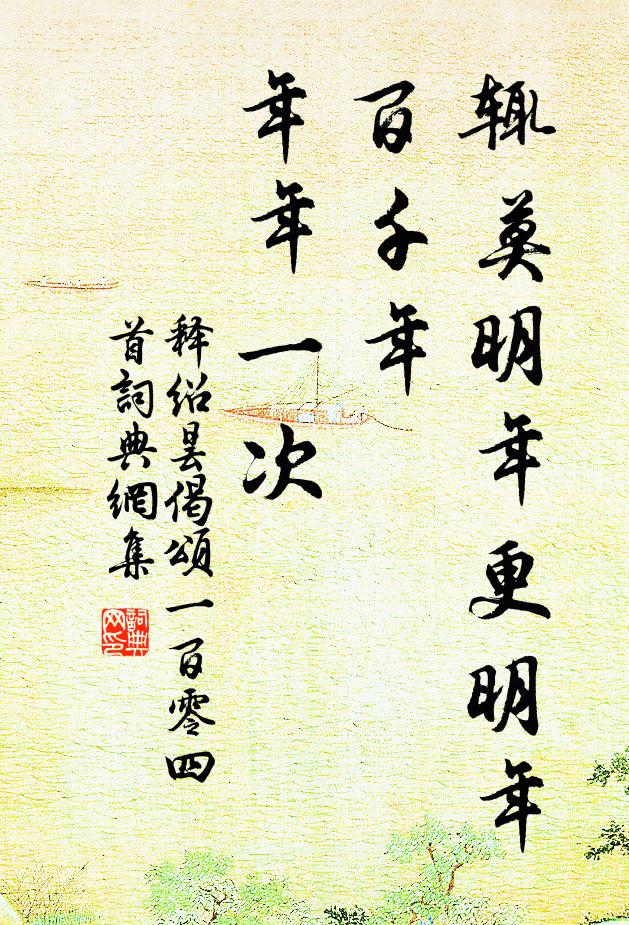 辄莫明年更明年
百千年
年年一次
释绍昙偈頌一百零四
首詞典網集
詞典
网印